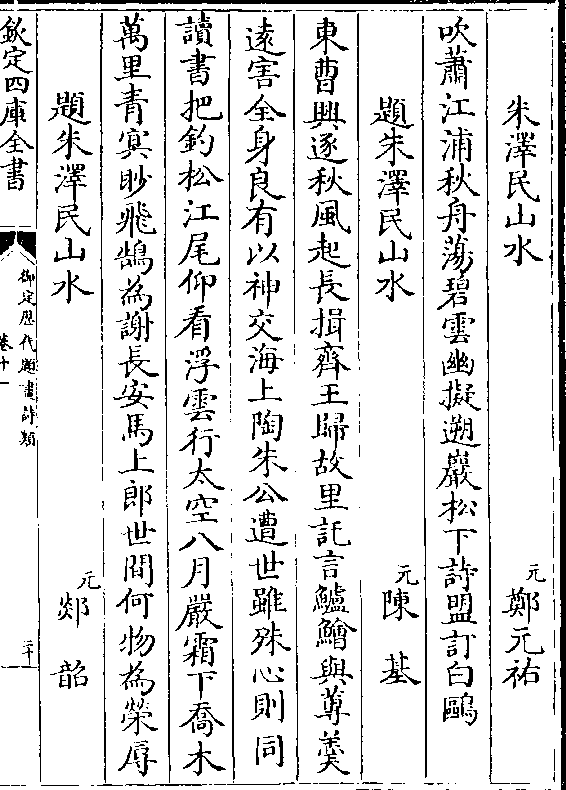 朱澤民山水 元 鄭元祐
吹蕭江浦秋舟蕩碧雲幽擬遡巖松下詩盟訂白鷗
題朱澤民山水 元 陳基
東曹興逐秋風起長揖齊王歸故里託言鱸鱠與蓴羮
逺害全身良有以神交海上陶朱公遭世雖殊心則同
讀書把釣松江尾仰看浮雲行太空八月嚴霜下喬木
萬里青冥眇飛鵠為謝長安馬上郎世間何物為榮辱
題朱澤民山水 元 郯韶
欽定四庫全書
御定歴代題畫詩類
卷十一
二十